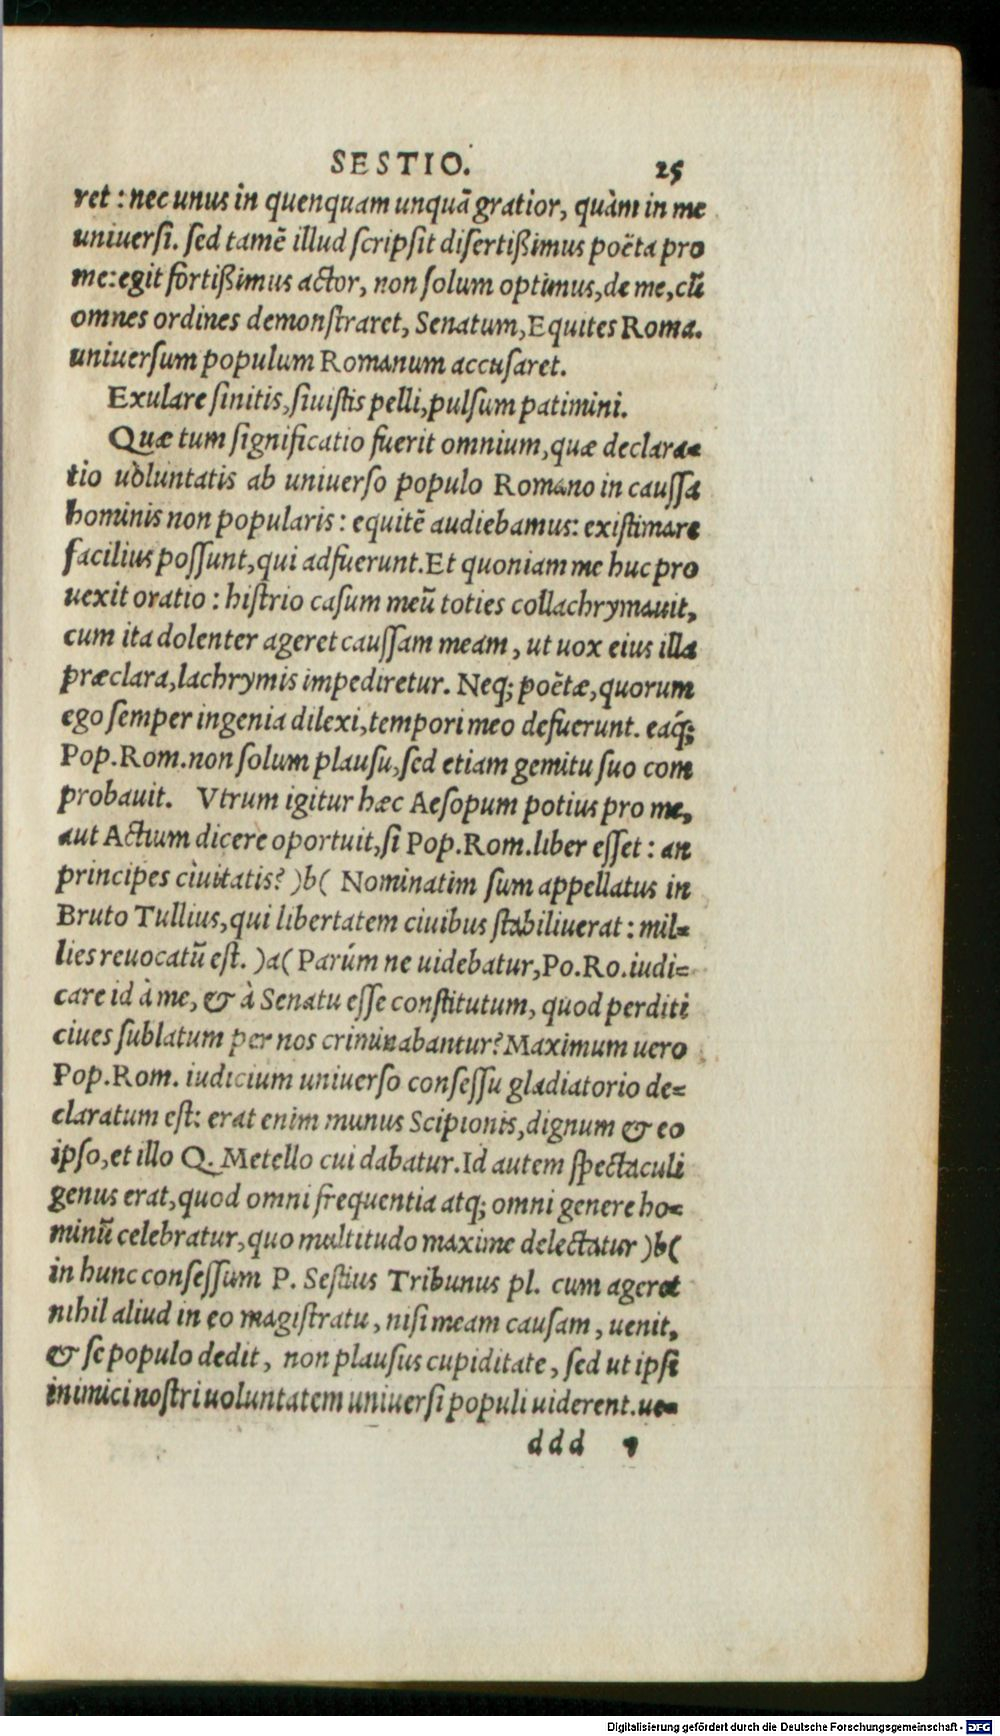 SESTIO. 25
ret : nec unus in quenquam unquā gratior, quàm in me
uniuersi. sed tamē illud scripsit disertißimus poëta pro
me: egit fortißimus actor, non solum optimus, de me, cū
omnes ordines demonstraret, Senatum, Equites Roma.
uniuersum populum Romanum accusaret.
Exulare sinitis, siuistis pelli, pulsum patimini.
Quæ tum significatio fuerit omnium, quæ declara=
tio uoluntatis ab uniuerso populo Romano in caussa
hominis non popularis : equitē audiebamus: existimare
facilius possunt, qui adfuerunt. Et quoniam me huc pro
uexit oratio : histrio casum meū toties collachrymauit,
cum ita dolenter ageret caussam meam , ut uox eius illa
præclara, lachrymis impediretur. Neq; poëtæ, quorum
ego semper ingenia dilexi, tempori meo defuerunt. eáq;
Pop. Rom. non solum plausu, sed etiam gemitu suo com
probauit. Vtrum igitur hæc Aesopum potius pro me,
aut Actium dicere oportuit, si Pop. Rom. liber esset : an
principes ciuitatis? )b( Nominatim sum appellatus in
Bruto Tullius, qui libertatem ciuibus stabiliuerat : mil=
lies reuocatū est. )a( Parúm ne uidebatur, Po. Ro. iudi=
care id à me, & à Senatu esse constitutum, quod perditi
ciues sublatum per nos criminabantur? Maximum uero
Pop. Rom. iudicium uniuerso consessu gladiatorio de=
claratum est: erat enim munus Scipionis, dignum & eo
ipso, et illo Q. Metello cui dabatur. Id autem spectaculi
genus erat, quod omni frequentia atq; omni genere ho=
minū celebratur, quo multitudo maxime delectatur )b(
in hunc consessum P. Sestius Tribunus pl. cum ageret
nihil aliud in eo magistratu , nisi meam causam , uenit,
& se populo dedit , non plausus cupiditate , sed ut ipsi
inimici nostri uoluntatem uniuersi populi uiderent. ue=
ddd
Digitalisierung gefördert durch die Deutsche Forschungsgemeinschaft - DFG